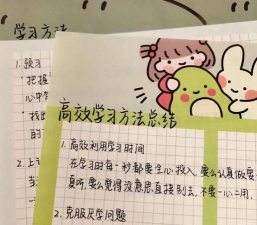 学习方法
1. 预习
· 把握
心中
· 找出
的
2. 上
当
高效学习方法总结
1. 高效利用学习时间
在学习时每一秒都要全心投入,要么认真做要
复所,要么觉得没意思直接别去,不要一心二用,
2. 克服厌学问题